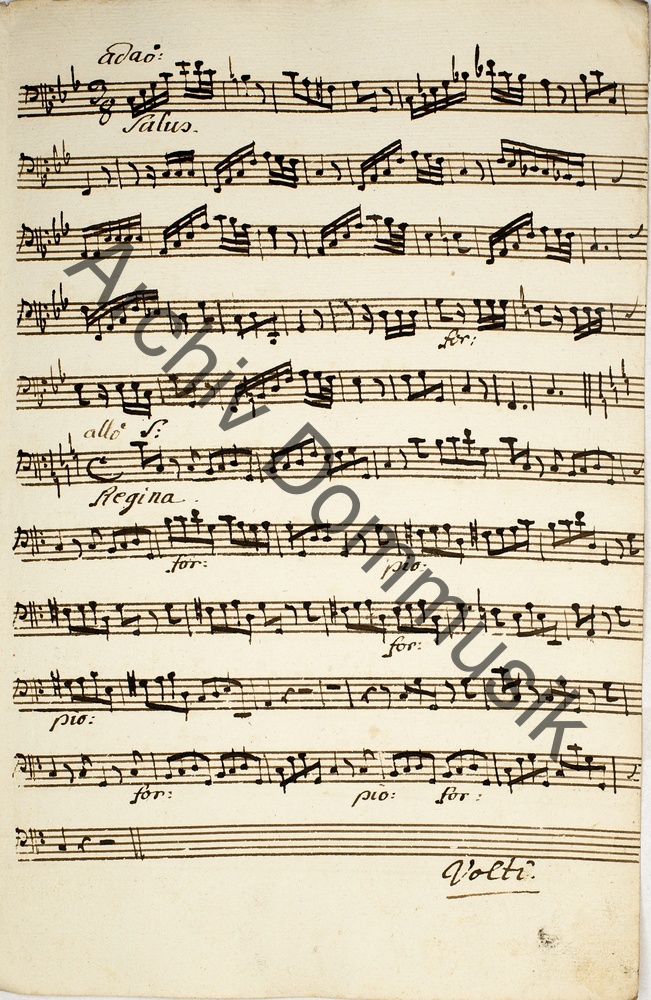 adaº:
3/8
Salus.
for:
allº S:
Regina.
for: pio:
for:
pio:
for: pio: for:
Volti.
Archiv Dommusik